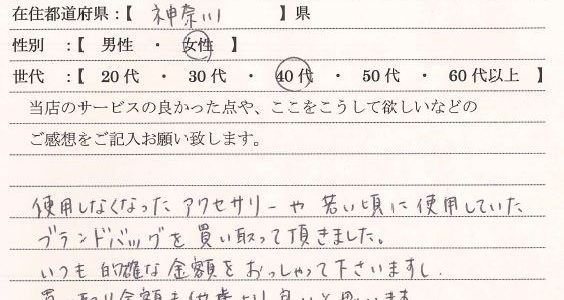 在住都道府県：【 神奈川 】県
性別 ：【 男性 ・ 女性 】
世代 ：【 20代 ・ 30代 ・ 40代 ・ 50代 ・ 60代以上 】
当店のサービスの良かった点や、ここをこうして欲しいなどの
ご感想をご記入お願い致します。
使用しなくなったアクセサリーや若い頃に使用していた
ブランドバッグを買い取って頂きました。
いつも的確な金額をおっしゃって下さいますし、
買い取り金額も他店より良いと思います